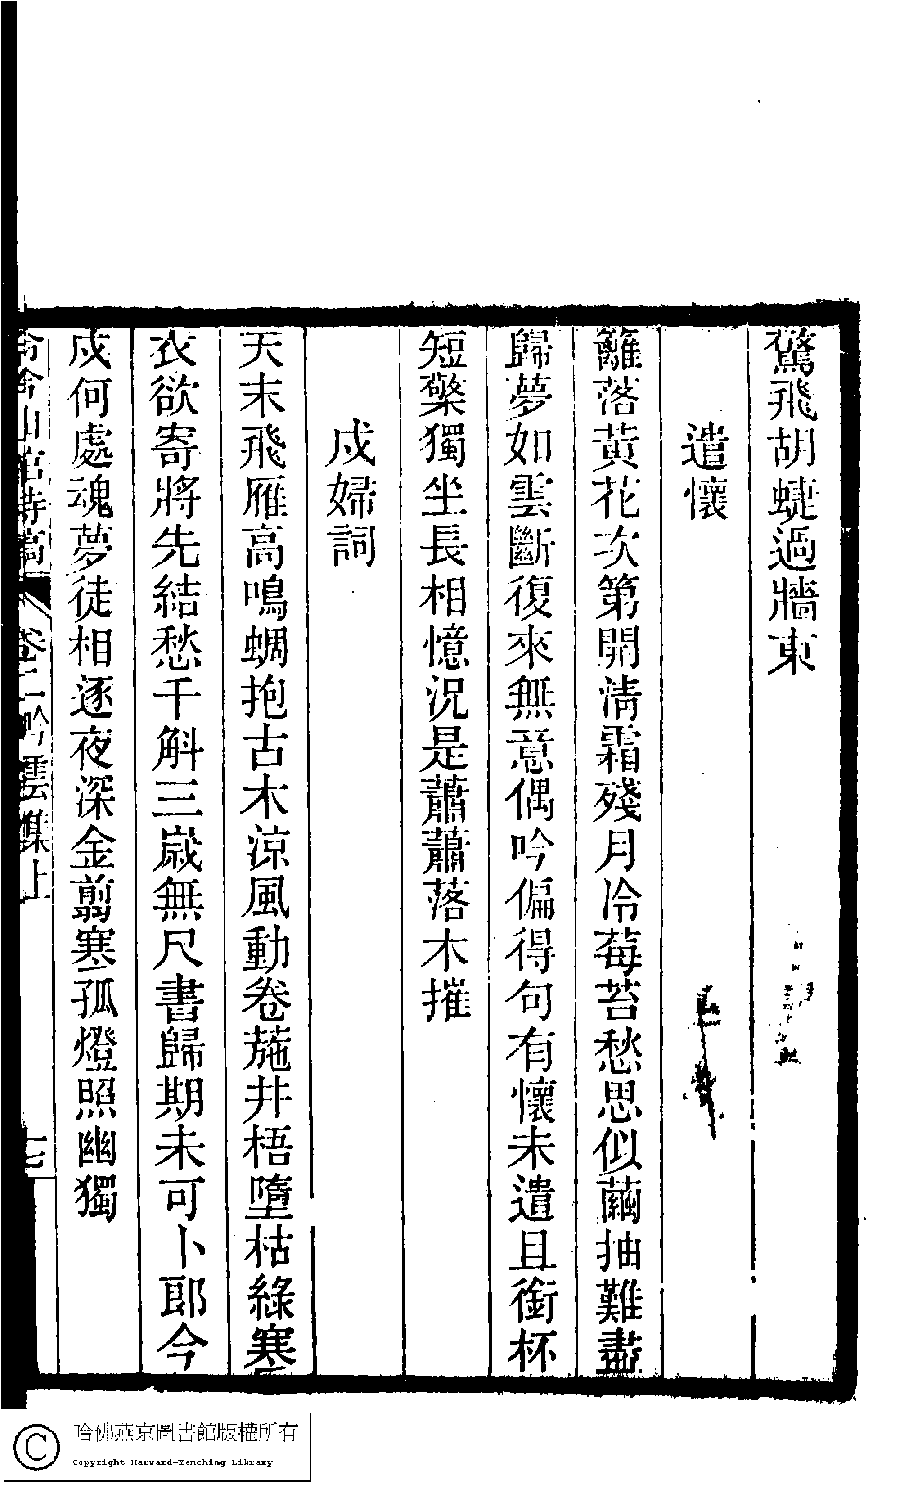 驚飛胡蜨過牆東
遣懷
籬落黃花次第開淸霜殘月冷莓苔愁思似繭抽難盡
歸夢如雲斷復來無意偶吟偏得句有懷未遣且銜杯
短檠獨坐長相憶況是蕭蕭落木摧
戍婦詞
天末飛雁高鳴蜩抱古木涼風動卷葹井梧墮枯綠寒
衣欲寄將先結愁千斛三歲無尺書歸期未可卜郎今
戍何處魂夢徒相逐夜深金翦寒孤燈照幽獨
山館詩稿 卷二吟雲集上 七
哈佛燕京圖書館版權所有
Copyright Harvard-Yenching Library